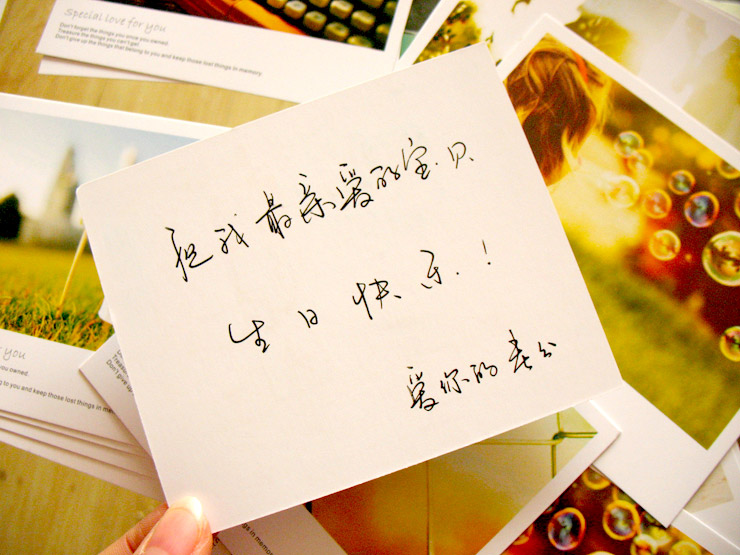 Special love for you
Don't forget the things you once you owned.
Treasure the things you can't get
Don't give up the things that belong to you and keep those lost things in memory
祝我最亲爱的宝贝
生日快乐!
爱你的老公
you
you owned.
to you and keep those lost things in memory
Don't
Treasure
Don't give up